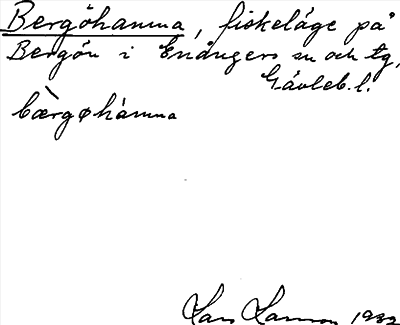 Bergöhamna, fiskeläge på
Bergön i Enångers sn och tg,
Gävleb. l.
bærgøhámna
Lars Larsson 1982